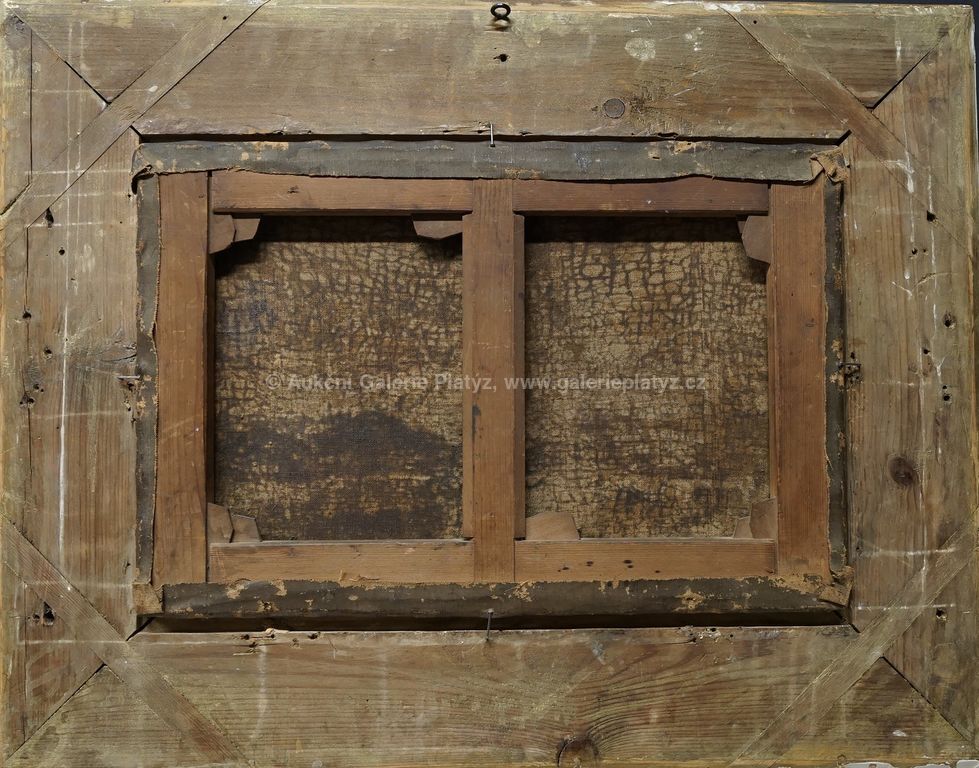 © Aukční Galerie Platýz, www.galerieplatyz.cz